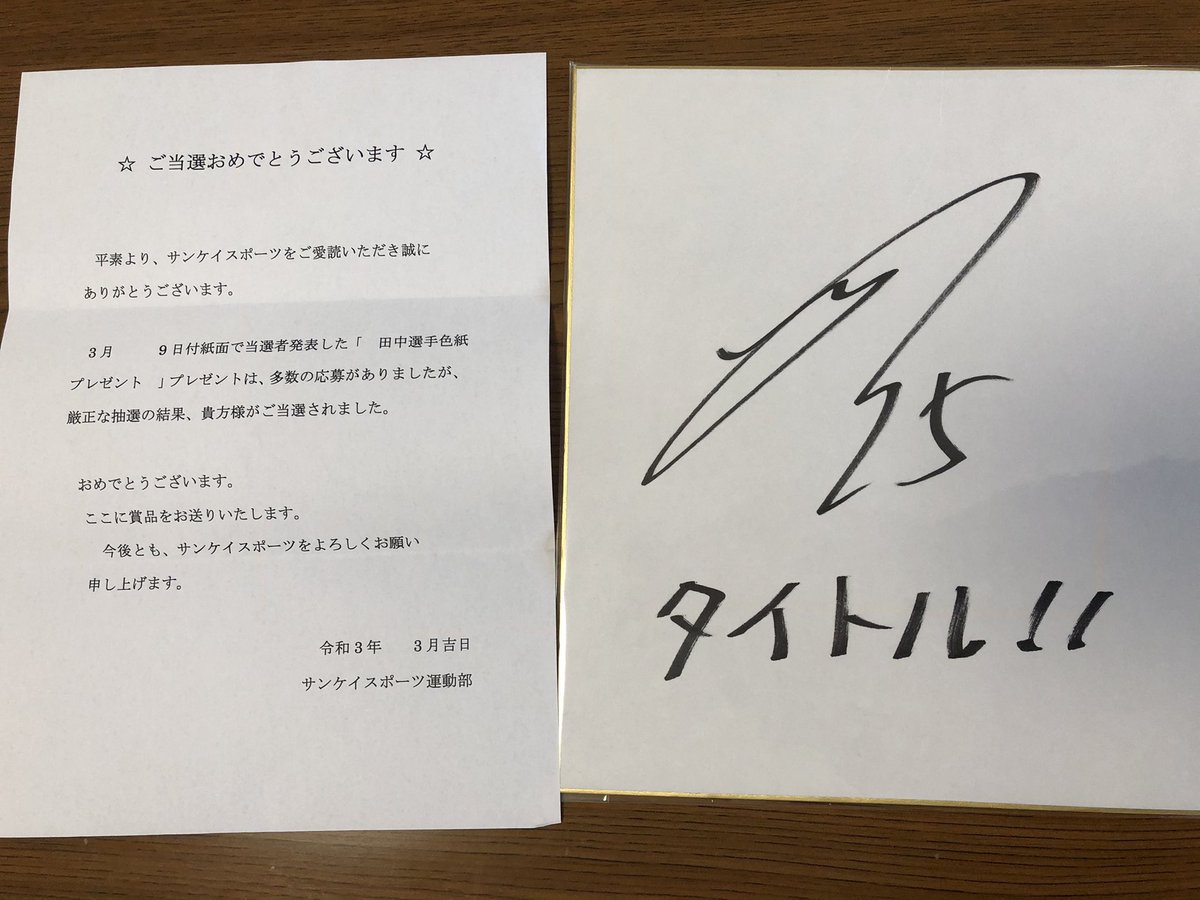 ☆ ご当選おめでとうございます ☆
平素より、サンケイスポーツをご愛読いただき誠に
ありがとうございます。
3月　　9日付紙面で当選者発表した「　田中選手色紙
プレゼント　」プレゼントは、多数の応募がありましたが、
厳正な抽選の結果、貴方様がご当選されました。
おめでとうございます。
ここに賞品をお送りいたします。
今後とも、サンケイスポーツをよろしくお願い
申し上げます。
令和3年　　3月吉日
サンケイスポーツ運動部
25
タイトル!!